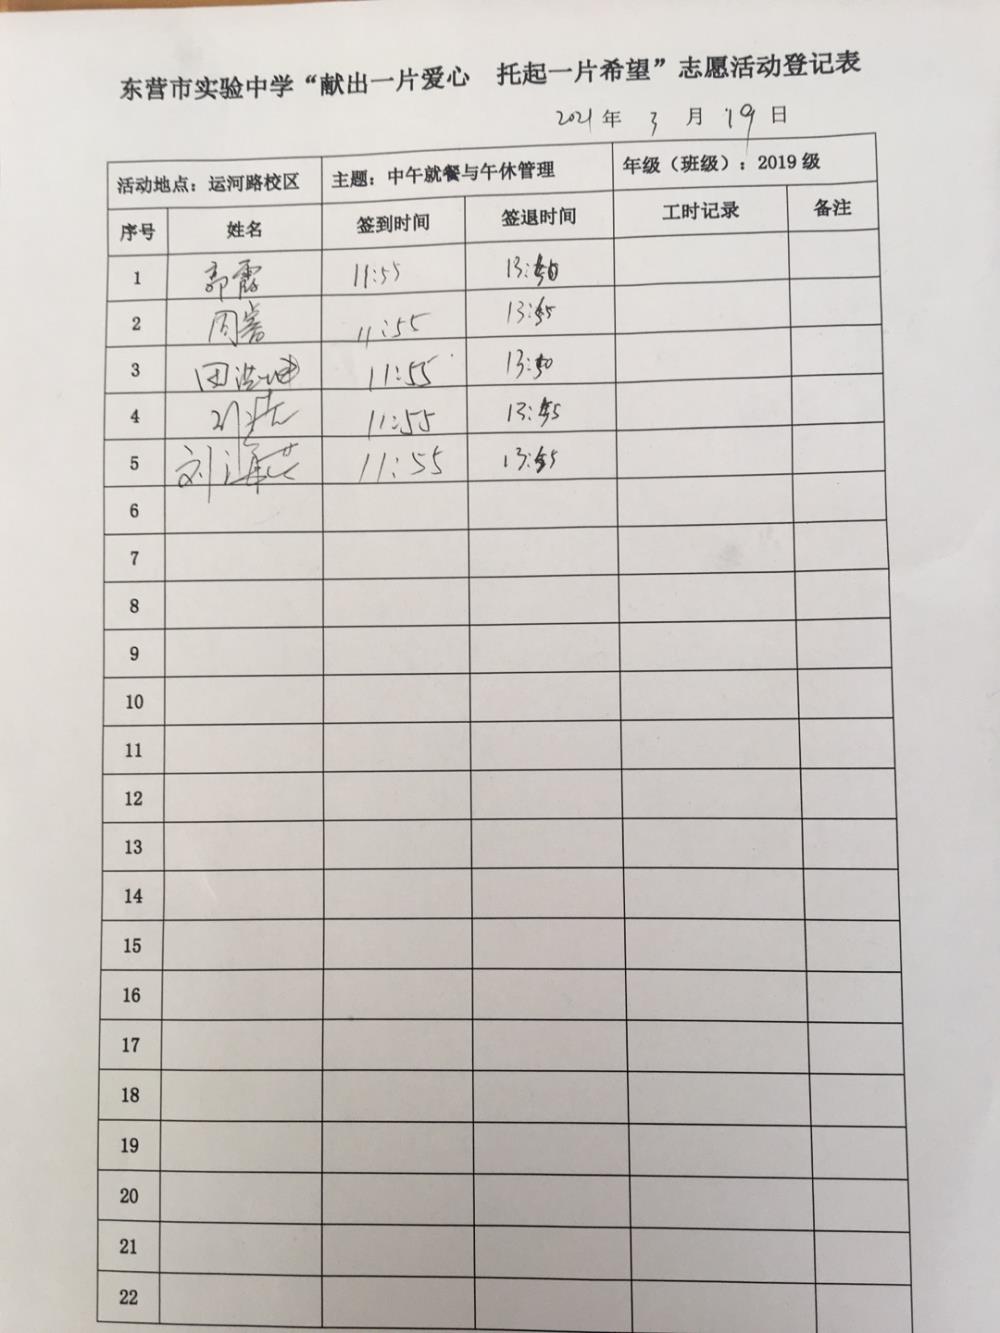 东营市实验中学“献出一片爱心 托起一片希望”志愿活动登记表
2021年 3 月 19 日
活动地点：运河路校区 主题：中午就餐与午休管理 年级（班级）：2019 级
序号 姓名 签到时间 签退时间 工时记录 备注
1 郭霞 11:55
2 11:55
3 11:55
4 11:55
5 刘海英 11:55
6
7
8
9
10
11
12
13
14
15
16
17
18
19
20
21
22